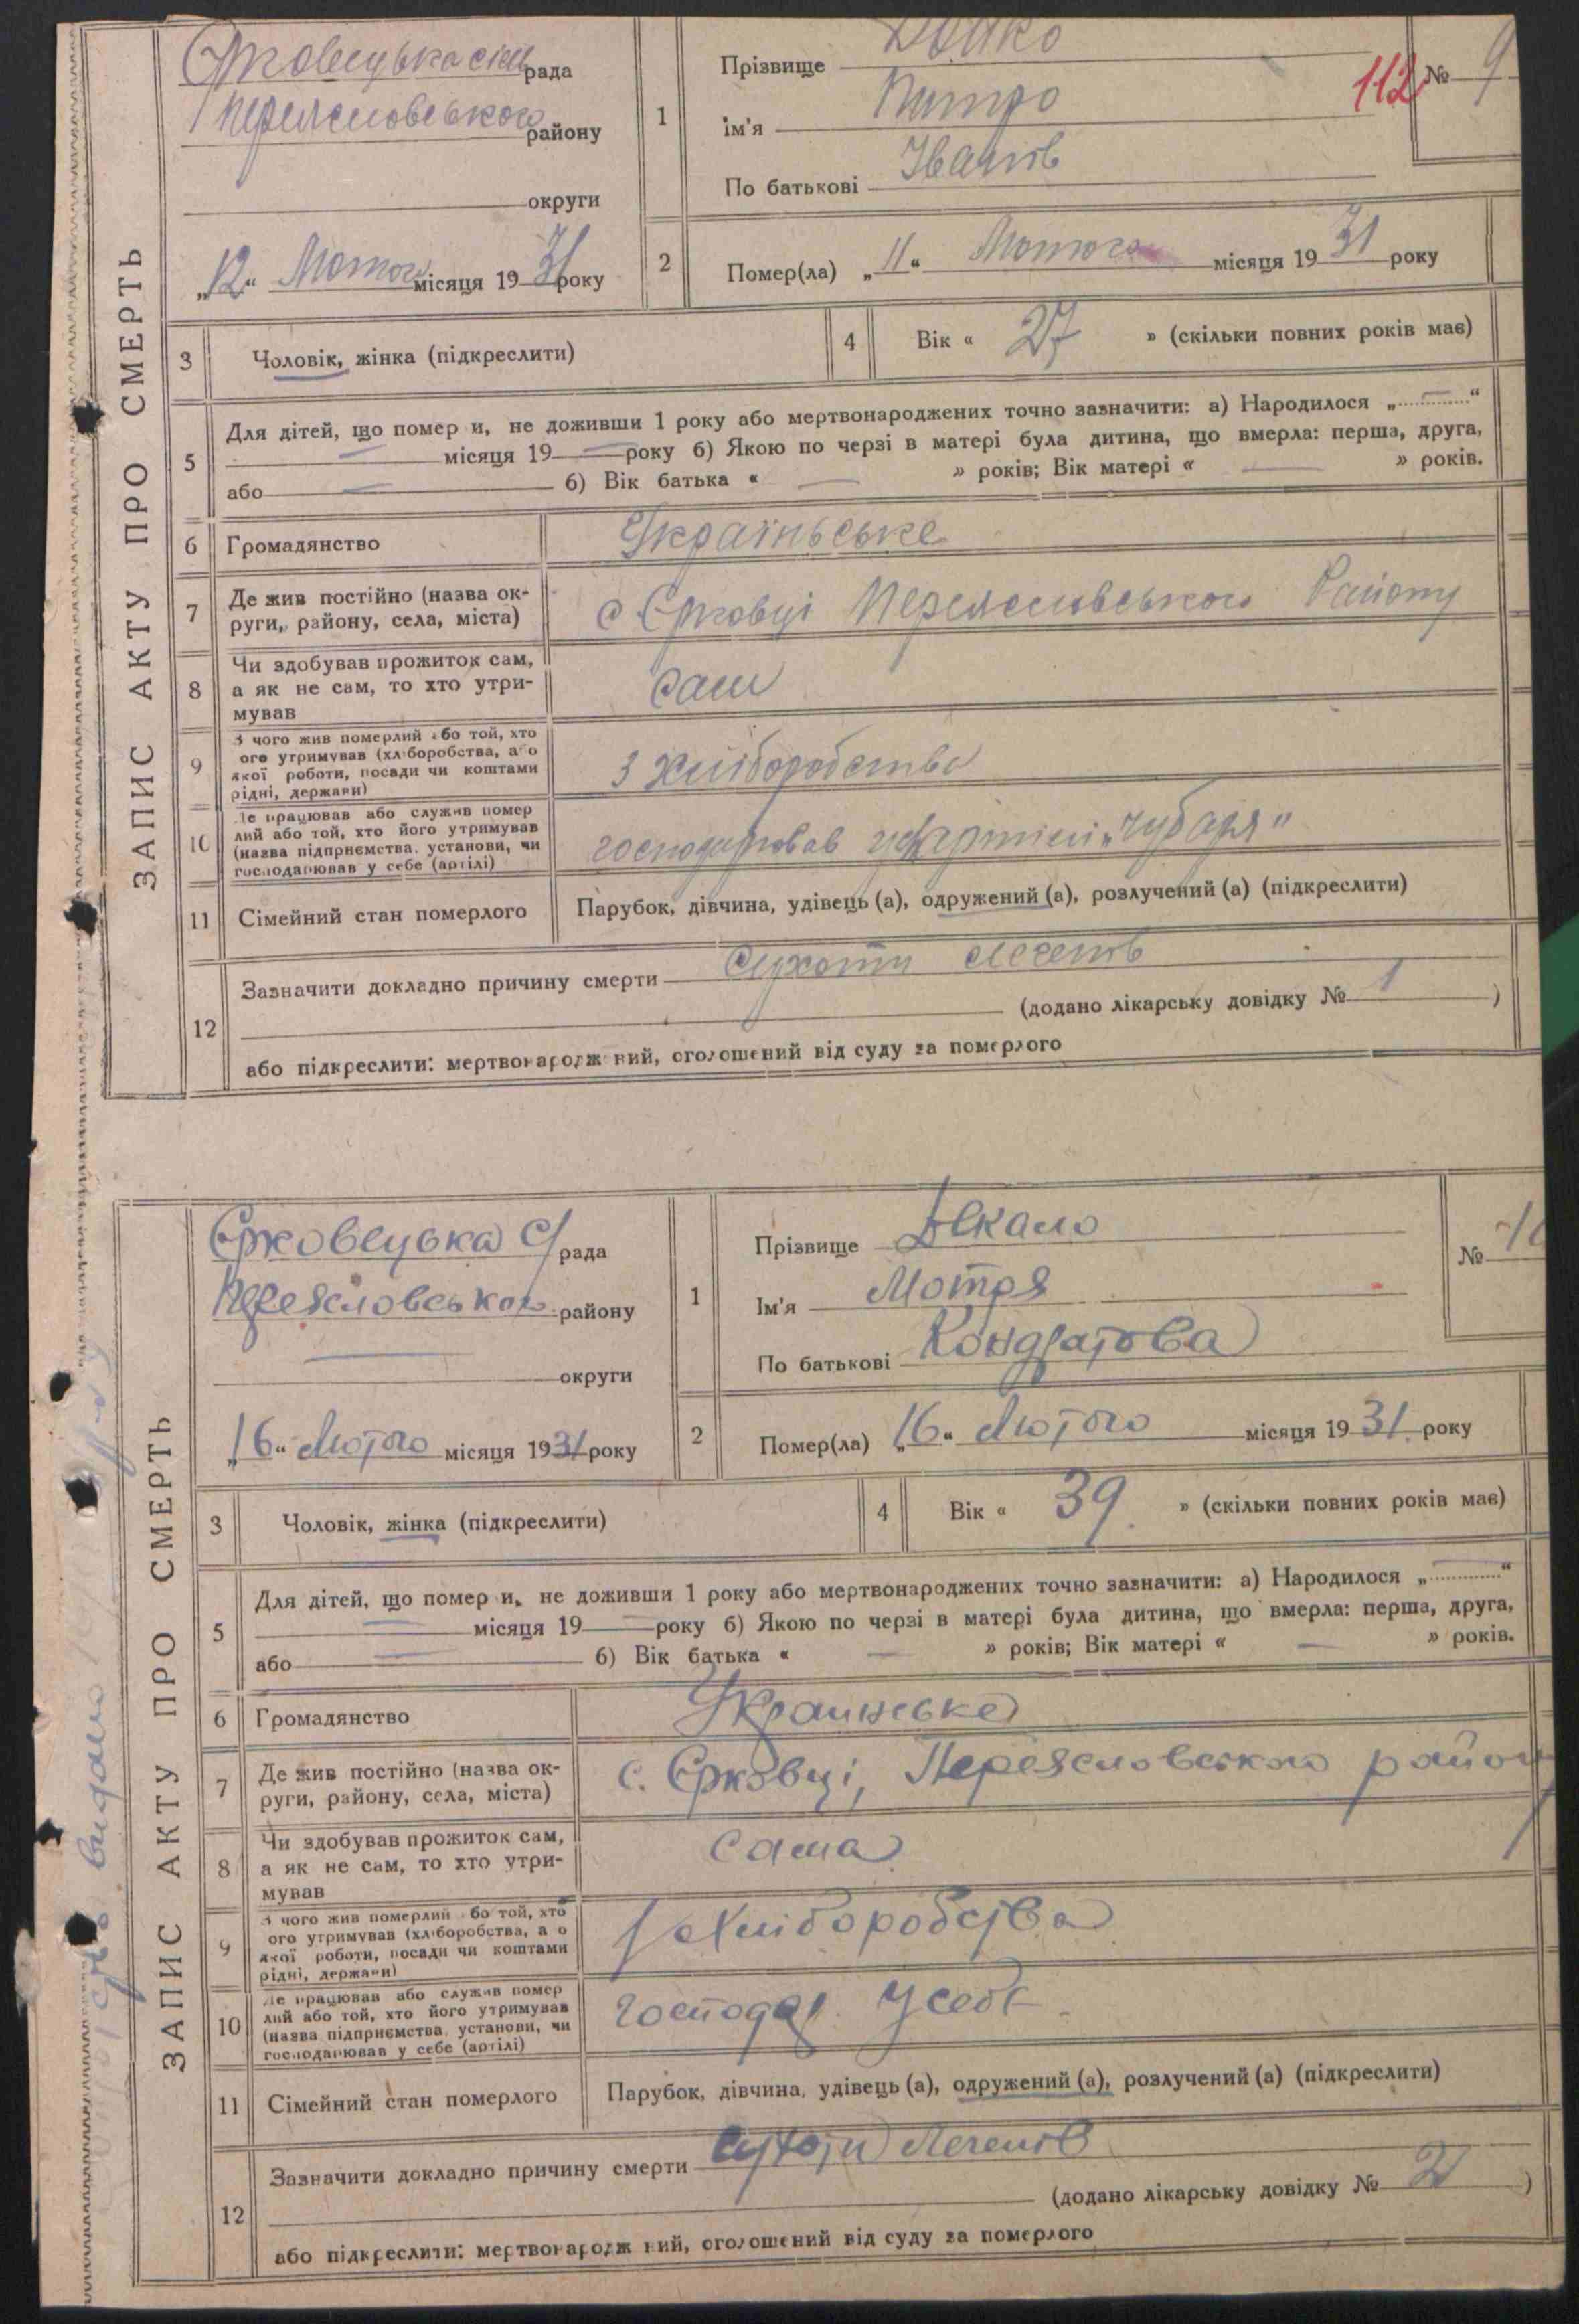 ЗАПИС АКТУ ПРО СМЕРТЬ
Єрковецька сіль рада
Переяславського району
округи
„12“ Лютого місяця 1931 року
1
Прізвище
Ім'я Питро
По батькові Іванів
112
№ 9
2
Помер(ла) „11“ Лютого місяця 1931 року
3
Чоловік, жінка (підкреслити)
4
Вік « 27 » (скільки повних років має)
5
Для дітей, що помер и, не доживши 1 року або мертвонароджених точно зазначити: а) Народилося „ — “
— місяця 19 — року б) Якою по черзі в матері була дитина, що вмерла: перша, друга,
або — б) Вік батька « — » років; Вік матері « — » років.
6
Громадянство
Україньське
7
Де жив постійно (назва ок-
руги, району, села, міста)
с Єрковці Переяславського Району
8
Чи здобував прожиток сам,
а як не сам, то хто утри-
мував
Сам
9
З чого жив померлий або той, хто
ого утримував (хліборобства, або
якої роботи, посади чи коштами
рідні, держави)
З Хліборобства
10
Де працював або служив помер
лий або той, хто його утримував
(назва підприємства, установи, чи
господарював у себе (артілі)
господарював у артілі „Чубаря"
11
Сімейний стан померлого
Парубок, дівчина, удівець (а), одружений (а), розлучений (а) (підкреслити)
12
Зазначити докладно причину смерти Сухоти легенів
(додано лікарську довідку № 1 )
або підкреслити: мертвонародж ний, оголошений від суду за померлого
ЗАПИС АКТУ ПРО СМЕРТЬ
Єрковецька С/ рада
Переяславського району
округи
„16“ Лютого місяця 1931 року
1
Прізвище Декало
Ім'я Мотря
По батькові Кондратова
№ 10
2
Помер(ла) „16“ Лютого місяця 1931 року
3
Чоловік, жінка (підкреслити)
4
Вік « 39 » (скільки повних років має)
5
Для дітей, що помер и, не доживши 1 року або мертвонароджених точно зазначити: а) Народилося „ — “
— місяця 19 — року б) Якою по черзі в матері була дитина, що вмерла: перша, друга,
або — б) Вік батька « — » років; Вік матері « — » років.
6
Громадянство
Украинське
7
Де жив постійно (назва ок-
руги, району, села, міста)
с. Єрковці, Переяславського району
8
Чи здобував прожиток сам,
а як не сам, то хто утри-
мував
Сама
9
З чого жив померлий або той, хто
ого утримував (хліборобства, а о
якої роботи, посади чи коштами
рідні, держави)
Хліборобства
10
Де працював або служив помер
лий або той, хто його утримував
(назва підприємства, установи, чи
господарював у себе (артілі)
господар. У себе
11
Сімейний стан померлого
Парубок, дівчина, удівець (а), одружений (а), розлучений (а) (підкреслити)
12
Зазначити докладно причину смерти Сухоти Легенів
(додано лікарську довідку № 2 )
або підкреслити: мертвонародж ний, оголошений від суду за померлого
видано